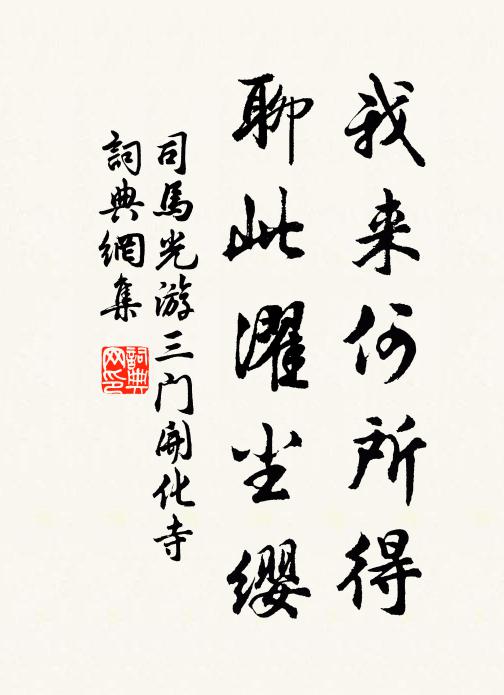 我来何所得
聊此濯尘缨
司馬光游三门開化寺
詞典網集
詞典网印